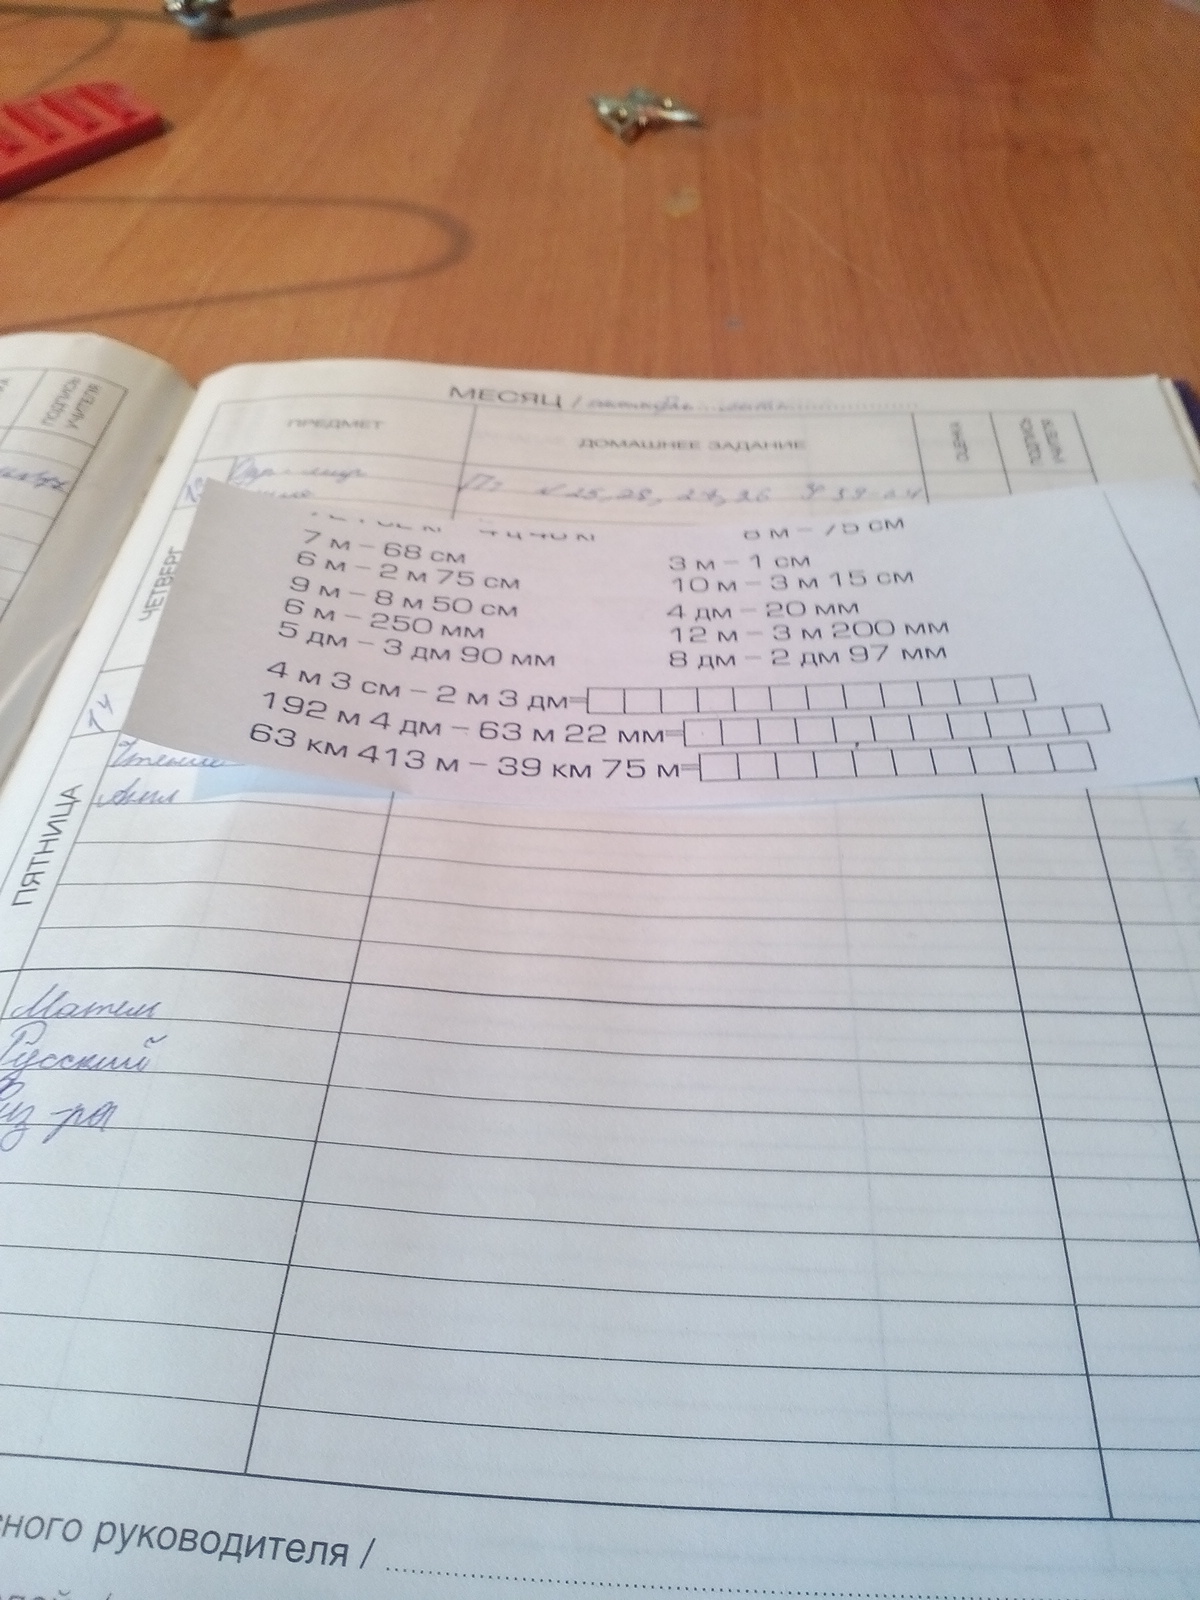 ПОДПИСЬ УЧИТЕЛЯ
МЕСЯЦ /
ПРЕДМЕТ
ДОМАШНЕЕ ЗАДАНИЕ
ОЦЕНКА
13
ЧЕТВЕРГ
7 м – 68 см
6 м – 2 м 75 см
9 м – 8 м 50 см
6 м – 250 мм
5 дм – 3 дм 90 мм
м – 75 см
3 м – 1 см
10 м – 3 м 15 см
4 дм – 20 мм
12 м – 3 м 200 мм
8 дм – 2 дм 97 мм
4 м 3 см – 2 м 3 дм=
192 м 4 дм – 63 м 22 мм=
63 км 413 м – 39 км 75 м=
14
ПЯТНИЦА
Чтение
Англ
Матем
Русский
Физ-ра
сного руководителя /